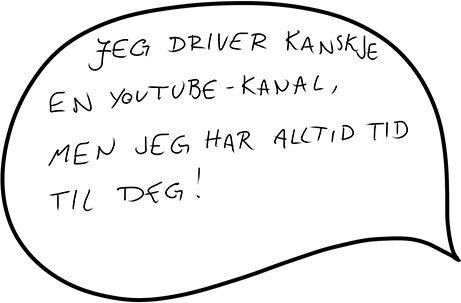 JEG DRIVER KANSKJE
EN YOUTUBE-KANAL,
MEN JEG HAR ALLTID TID
TIL DEG!